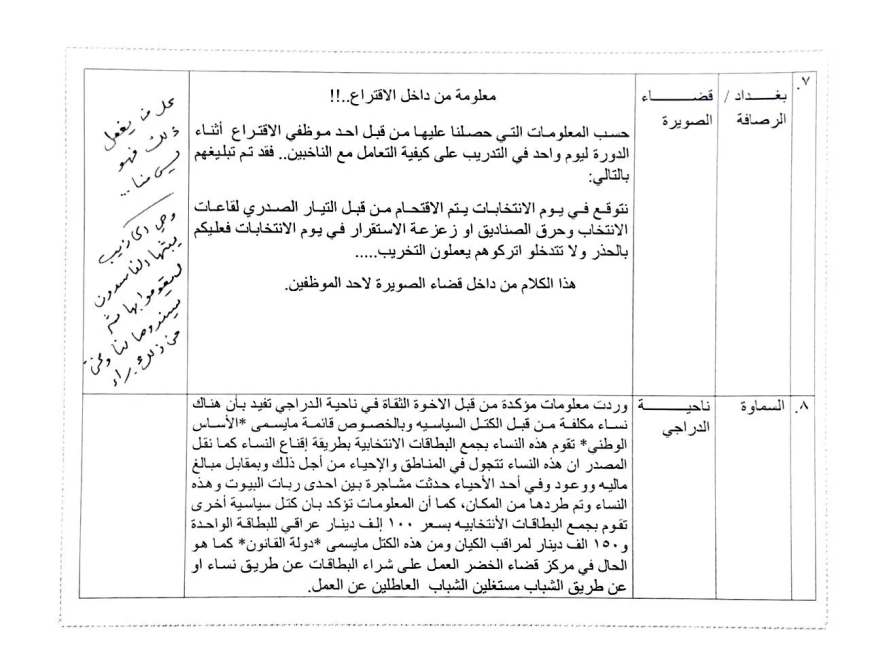 ٧.
بغـــداد /
الرصافة
قضـــــــاء
الصويرة
معلومة من داخل الاقتراع..!!
حسب المعلومات التي حصلنا عليها من قبل احد موظفي الاقتراع أثناء
الدورة ليوم واحد في التدريب على كيفية التعامل مع الناخبين.. فقد تم تبليغهم
بالتالي:
نتوقع في يوم الانتخابات يتم الاقتحام من قبل التيار الصدري لقاعات
الانتخاب وحرق الصناديق او زعزعة الاستقرار في يوم الانتخابات فعليكم
بالحذر ولا تتدخلو اتركوهم يعملون التخريب.....
هذا الكلام من داخل قضاء الصويرة لاحد الموظفين.
على من يفعل
ذلك فهو
ليس منا ...
وهي اكاذيب
يبثها الفاسدون
ليقوموا بها ثم
سيسندوها لنا ونحن
من ذلك براء
٨.
السماوة
ناحيـــــــــة
الدراجي
وردت معلومات مؤكدة من قبل الاخوة الثقاة في ناحية الدراجي تفيد بأن هناك
نساء مكلفة من قبل الكتل السياسيه وبالخصوص قائمة مايسمى *الأساس
الوطني* تقوم هذه النساء بجمع البطاقات الانتخابية بطريقة إقناع النساء كما نقل
المصدر ان هذه النساء تتجول في المناطق والإحياء من أجل ذلك وبمقابل مبالغ
ماليه ووعود وفي أحد الأحياء حدثت مشاجرة بين احدى ربات البيوت وهذه
النساء وتم طردها من المكان، كما أن المعلومات تؤكد بان كتل سياسية أخرى
تقوم بجمع البطاقات الأنتخابيه بسعر ١٠٠ إلف دينار عراقي للبطاقة الواحدة
و١٥٠ الف دينار لمراقب الكيان ومن هذه الكتل مايسمى *دولة القانون* كما هو
الحال في مركز قضاء الخضر العمل على شراء البطاقات عن طريق نساء او
عن طريق الشباب مستغلين الشباب العاطلين عن العمل.